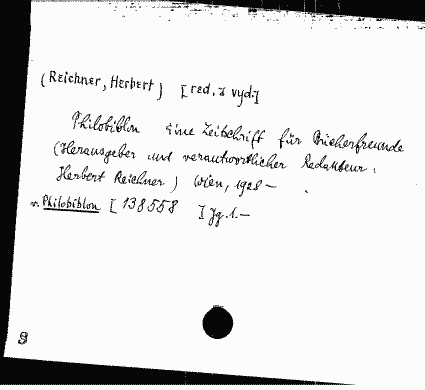 (Reichner, Herbert) [red. a vyd.]
Philobiblon Eine Zeitschrift für Bücherfreunde
(Herausgeber und verantwortlicher Redakteur:
Herbert Reichner) Wien, 1928 –
v. Philobiblon [138558 ] Jg. 1.–